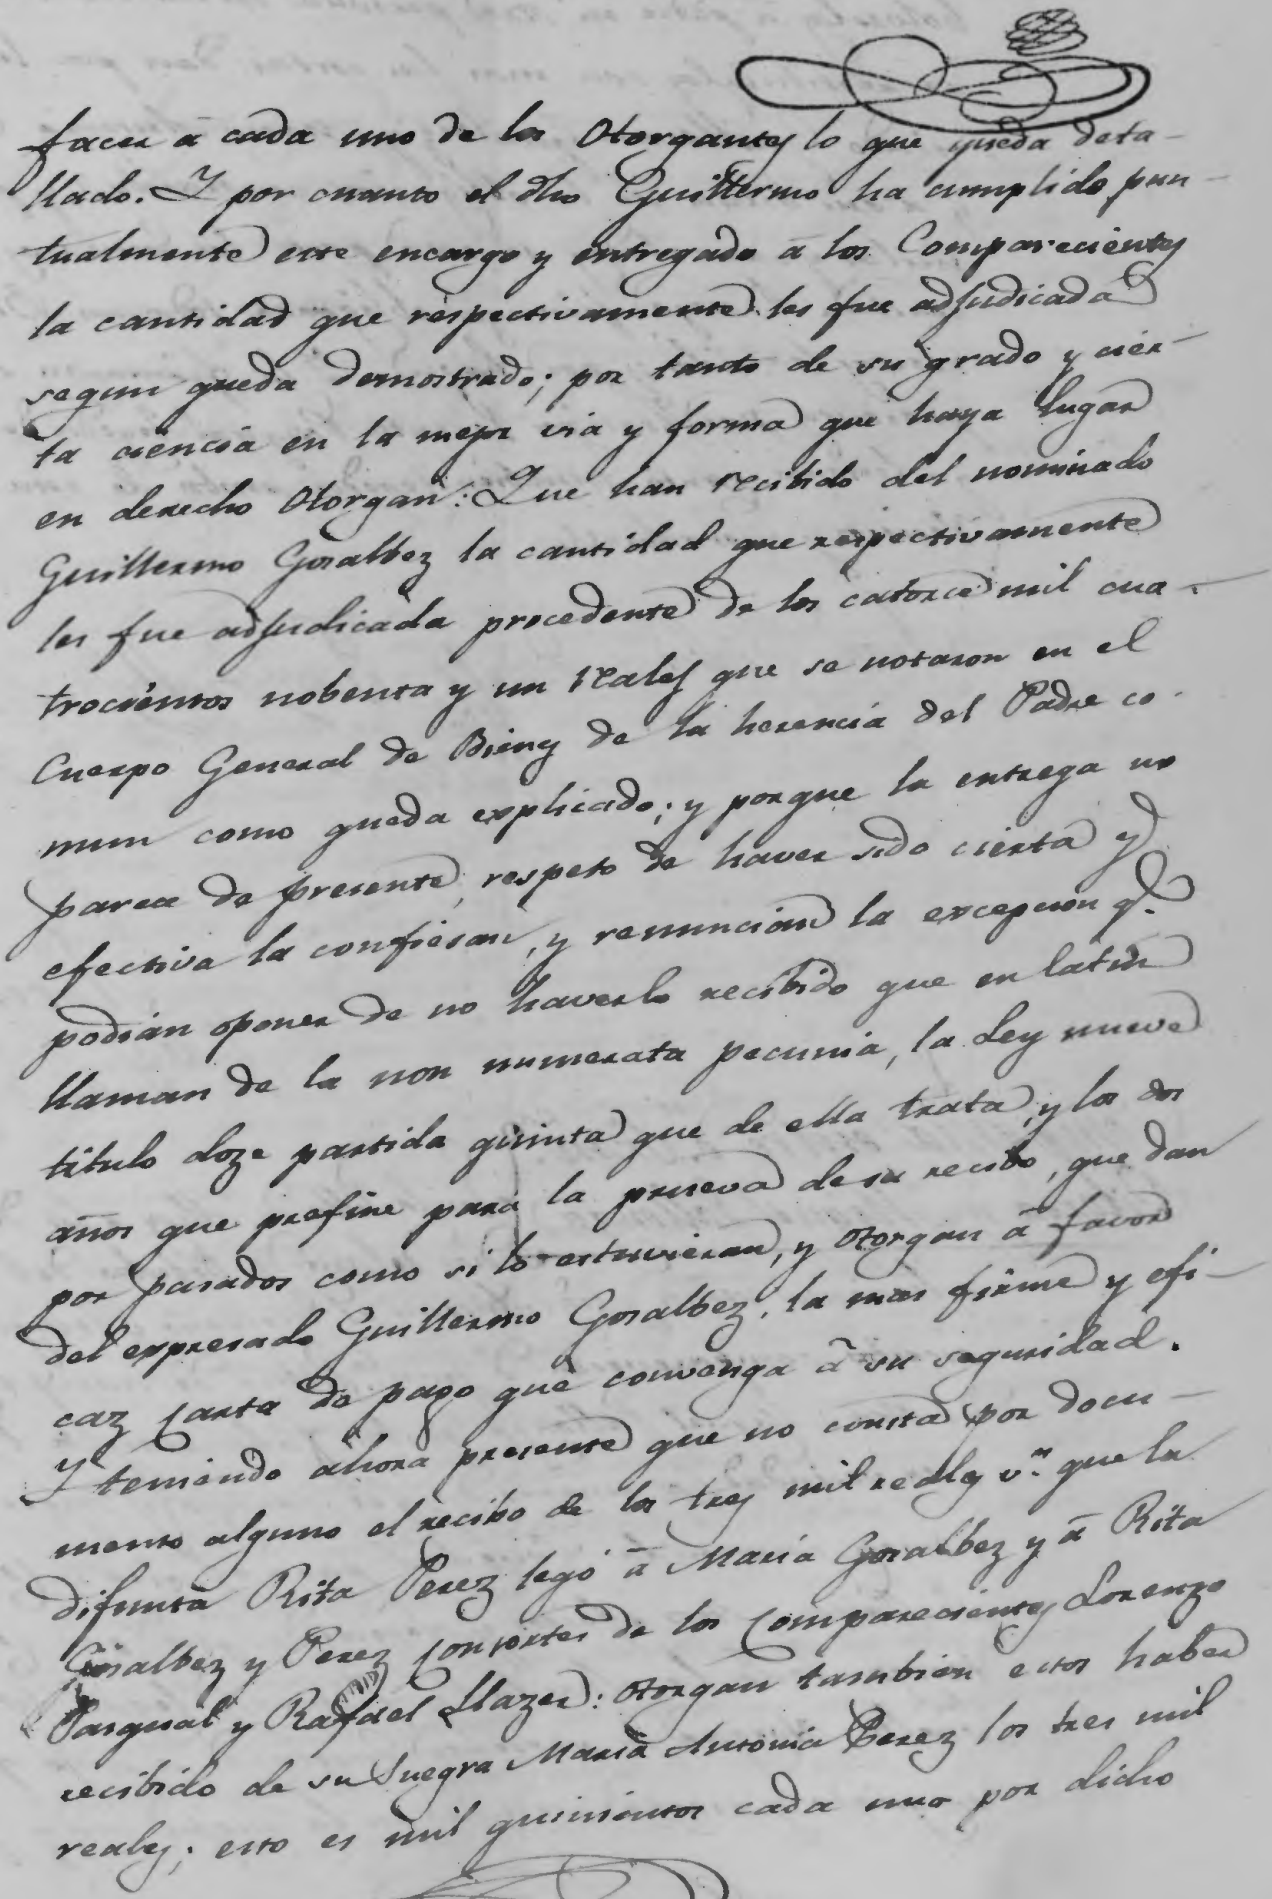 facer á cada uno de los Otorgantes lo que queda deta-
llado. Y por cuanto el dho Guillermo ha cumplido pun-
tualmente este encargo y entregado á los Comparecientes
la cantidad que respectivamente les fue adjudicada
segun queda demostrado; por tanto de su grado y cier-
ta ciencia en la mejor via y forma que haya lugar
en derecho Otorgan: Que han recibido del nominado
Guillermo Gosalbez la cantidad que respectivamente
les fue adjudicada procedente de los catorce mil cua-
trocientos nobenta y un reales que se notaron en el
Cuerpo General de Bienes de la herencia del Padre co-
mun como queda explicado; y porque la entrega no
parece de presente, respeto de haver sido cierta y
efectiva la confiesan, y renuncian la excepcion q.e
podian oponer de no haverlo recibido que en latin
llaman de la non numerata pecunia, la Ley nueve
titulo doze partida quinta que de ella trata, y los dos
años que prefine para la prueva de su recibo, que dan
por pasados como si lo estuvieran, y otorgan á favor
del expresado Guillermo Gosalbez, la mas firme y efi-
caz carta de pago que convenga á su seguridad.
Y teniendo ahora presente que no consta por docu-
mento alguno el recibo de los tres mil reales v.n que la
difunta Rita Perez legó á Maria Gosalbez y á Rita
Gosalbez y Perez consortes de los Comparecientes Lorenzo
Pasqual y Rafael Llazer: otorgan tambien estos haber
recibido de su Suegra Maria Antonia Perez los tres mil
reales; esto es mil quinientos cada uno por dicho